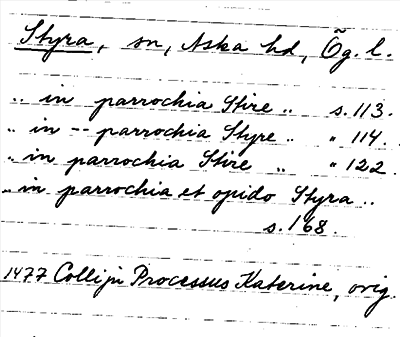 Styra, sn, Aska hd, Ög. l.
.. in parrochia Stire .. s. 113.
.. in -- parrochia Styre .. " 114.
.. in parrochia Stire .. " 122.
.. in parrochia et opido Styra ..
s. 168.
1477 Collijn Processus Katerine, orig.